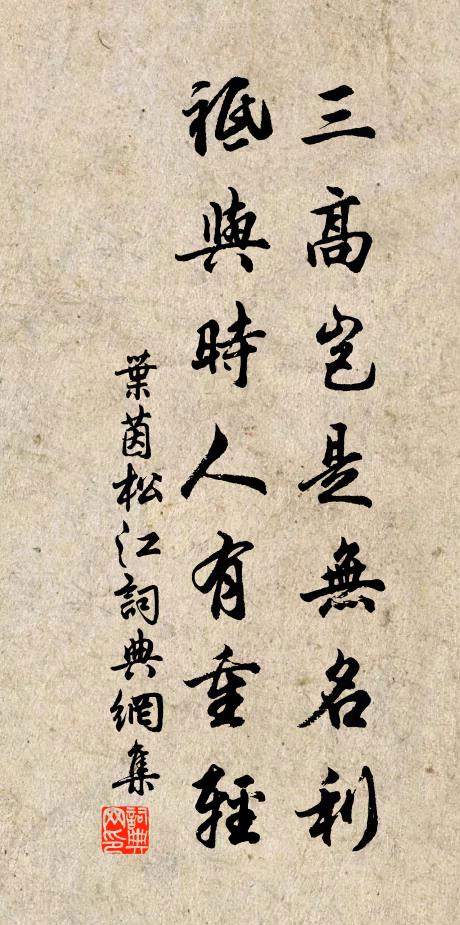 三高豈是無名利
祗與時人有重輕
葉茵松江詞典網集
詞典网印